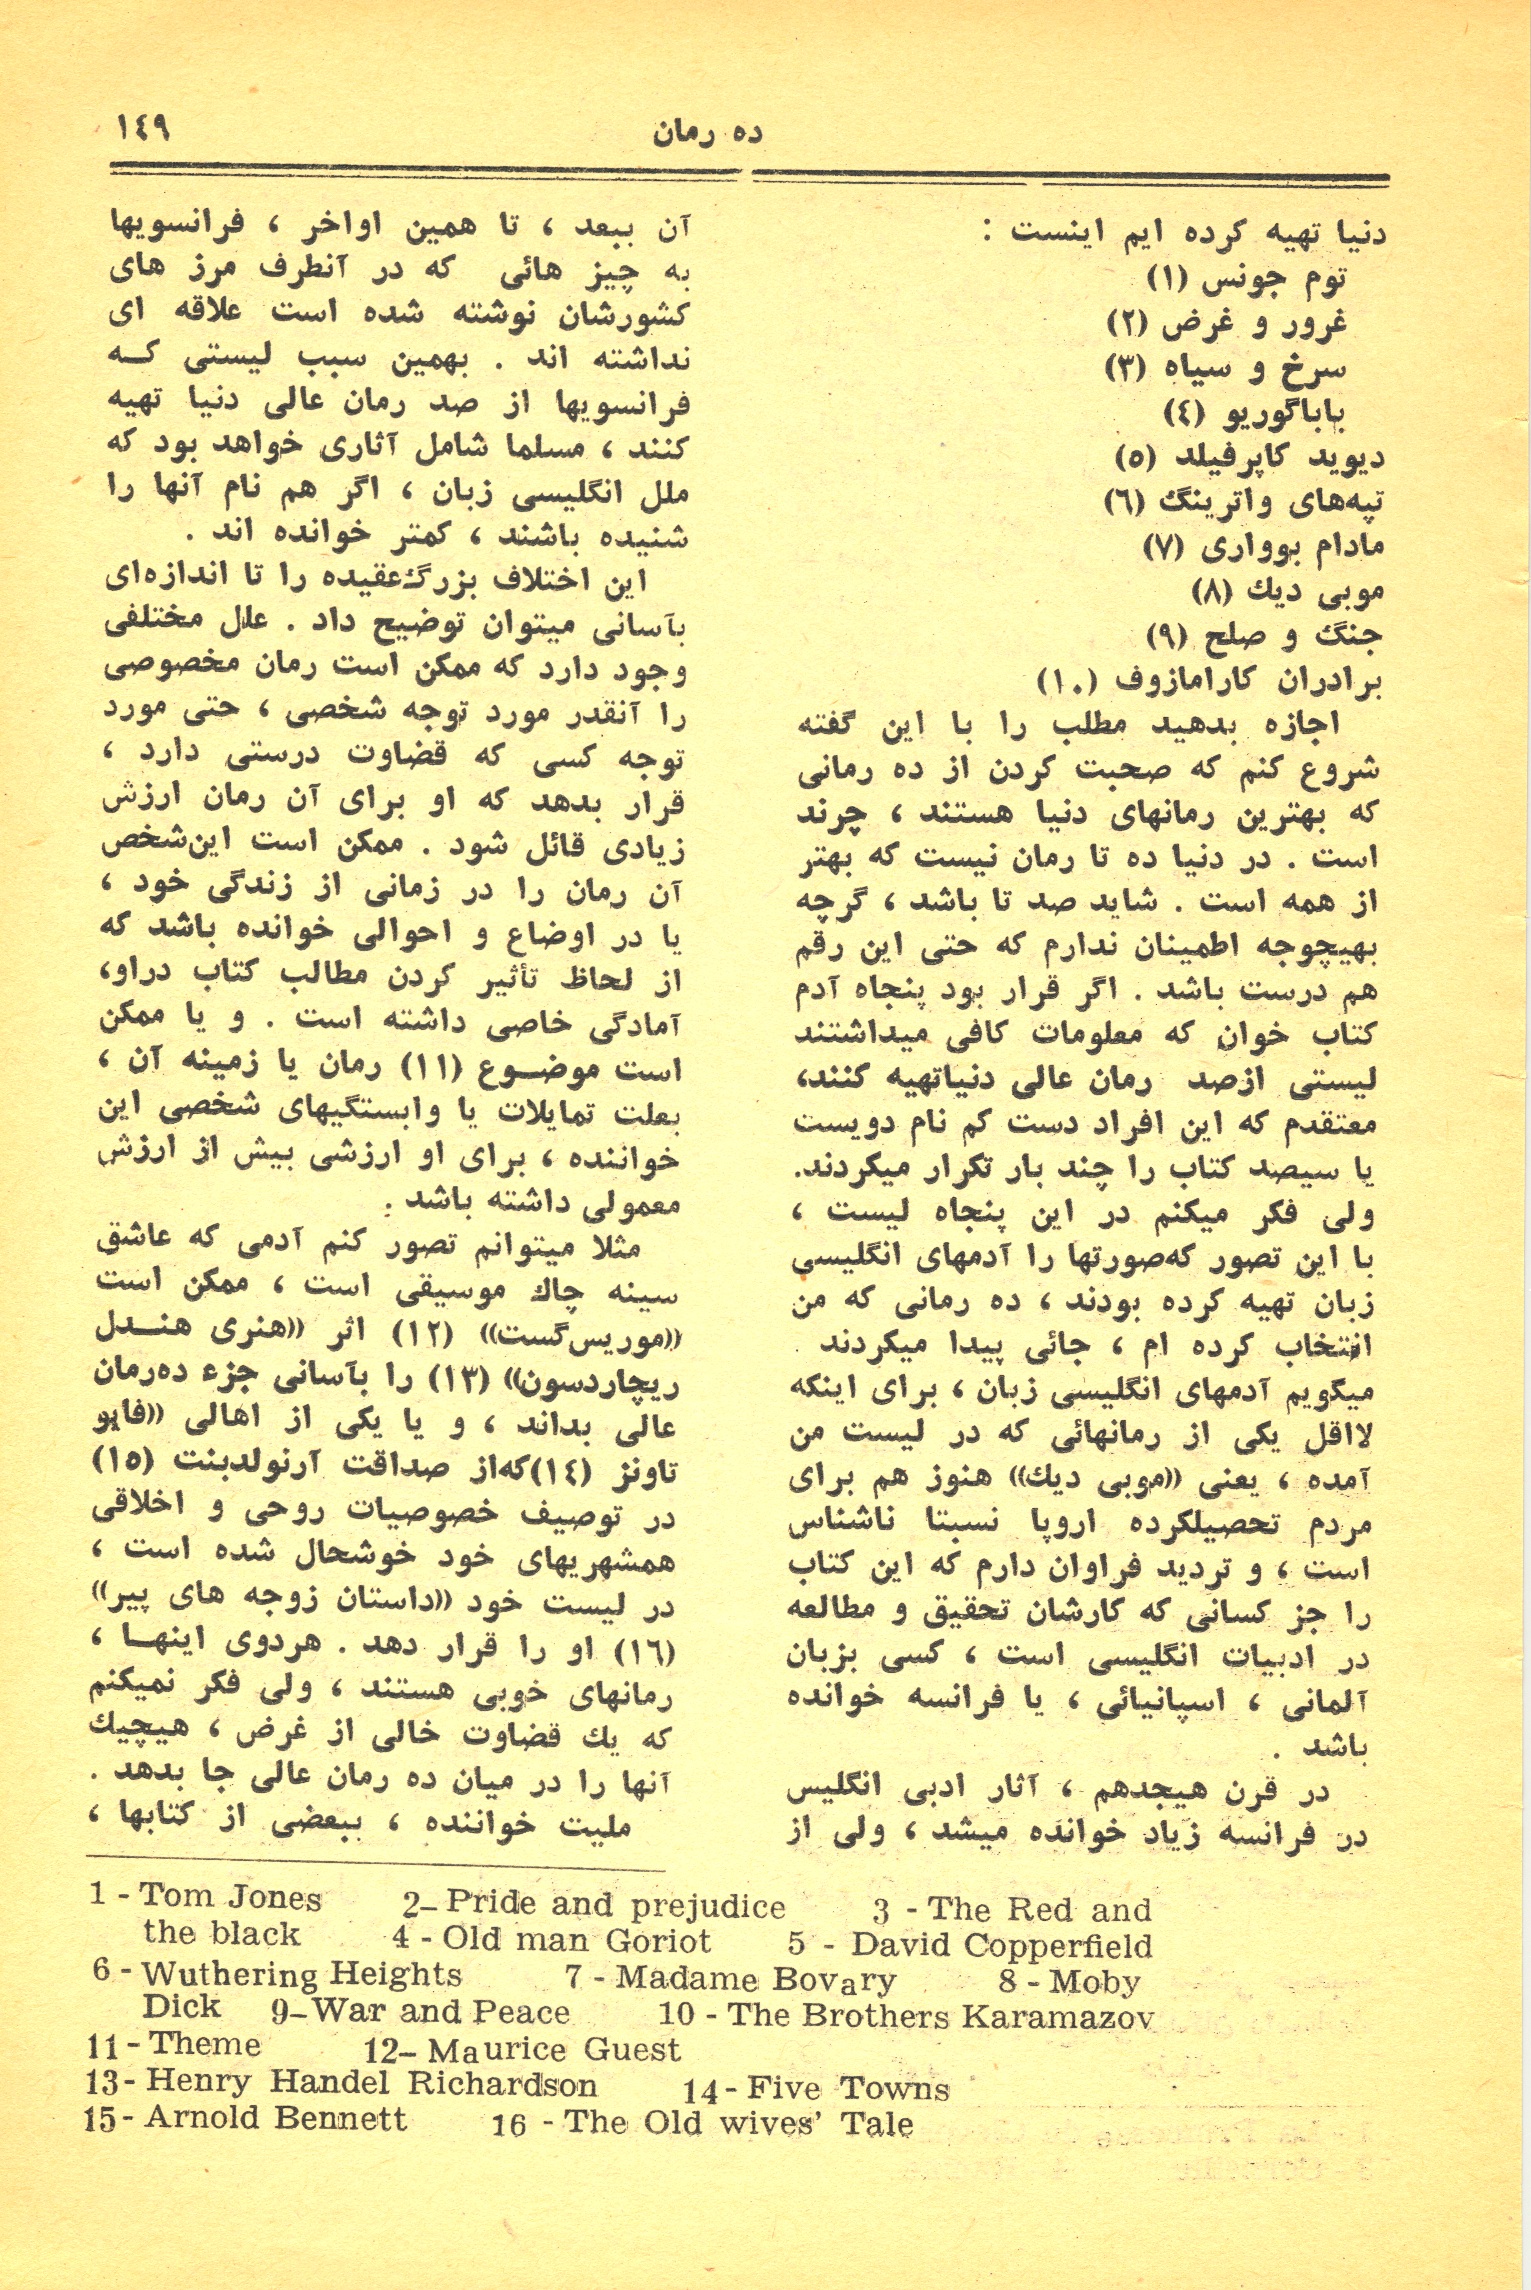 ده رمان
١٤٩
دنیا تهیه کرده ایم اینست :
توم جونس (١)
غرور و غرض (٢)
سرخ و سیاه (٣)
باباگوریو (٤)
دیوید کاپرفیلد (٥)
تپه‌های واترینگ (٦)
مادام بوواری (٧)
موبی دیك (٨)
جنگ و صلح (٩)
برادران کارامازوف (١٠)
اجازه بدهید مطلب را با این گفته
شروع کنم که صحبت کردن از ده رمانی
که بهترین رمانهای دنیا هستند ، چرند
است . در دنیا ده تا رمان نیست که بهتر
از همه است . شاید صد تا باشد ، گرچه
بهیچوجه اطمینان ندارم که حتی این رقم
هم درست باشد . اگر قرار بود پنجاه آدم
کتاب خوان که معلومات کافی میداشتند
لیستی ازصد رمان عالی دنیاتهیه کنند،
معتقدم که این افراد دست کم نام دویست
یا سیصد کتاب را چند بار تکرار میکردند.
ولی فکر میکنم در این پنجاه لیست ،
با این تصور که‌صورتها را آدمهای انگلیسی
زبان تهیه کرده بودند ، ده رمانی که من
انتخاب کرده ام ، جائی پیدا میکردند .
میگویم آدمهای انگلیسی زبان ، برای اینکه
لااقل یکی از رمانهائی که در لیست من
آمده ، یعنی «موبی دیك» هنوز هم برای
مردم تحصیلکرده اروپا نسبتا ناشناس
است ، و تردید فراوان دارم که این کتاب
را جز کسانی که کارشان تحقیق و مطالعه
در ادبیات انگلیسی است ، کسی بزبان
آلمانی ، اسپانیائی ، یا فرانسه خوانده
باشد .
در قرن هیجدهم ، آثار ادبی انگلیس
در فرانسه زیاد خوانده میشد ، ولی از
آن ببعد ، تا همین اواخر ، فرانسویها
به چیز هائی که در آنطرف مرز های
کشورشان نوشته شده است علاقه ای
نداشته اند . بهمین سبب لیستی کـه
فرانسویها از صد رمان عالی دنیا تهیه
کنند ، مسلما شامل آثاری خواهد بود که
ملل انگلیسی زبان ، اگر هم نام آنها را
شنیده باشند ، کمتر خوانده اند .
این اختلاف بزرگ‌عقیده را تا اندازه‌ای
بآسانی میتوان توضیح داد . علل مختلفی
وجود دارد که ممکن است رمان مخصوصی
را آنقدر مورد توجه شخصی ، حتی مورد
توجه کسی که قضاوت درستی دارد ،
قرار بدهد که او برای آن رمان ارزش
زیادی قائل شود . ممکن است این‌شخص
آن رمان را در زمانی از زندگی خود ،
یا در اوضاع و احوالی خوانده باشد که
از لحاظ تأثیر کردن مطالب کتاب دراو،
آمادگی خاصی داشته است . و یا ممکن
است موضـوع (١١) رمان یا زمینه آن ،
بعلت تمایلات یا وابستگیهای شخصی این
خواننده ، برای او ارزشی بیش از ارزش
معمولی داشته باشد .
مثلا میتوانم تصور کنم آدمی که عاشق
سینه چاك موسیقی است ، ممکن است
«موریس‌گست» (١٢) اثر «هنری هنـدل
ریچاردسون» (١٣) را بآسانی جزء ده‌رمان
عالی بداند ، و یا یکی از اهالی «فایو
تاونز (١٤)که‌از صداقت آرنولدبنت (١٥)
در توصیف خصوصیات روحی و اخلاقی
همشهریهای خود خوشحال شده است ،
در لیست خود «داستان زوجه های پیر»
(١٦) او را قرار دهد . هردوی اینهـا ،
رمانهای خوبی هستند ، ولی فکر نمیکنم
که یك قضاوت خالی از غرض ، هیچیك
آنها را در میان ده رمان عالی جا بدهد .
ملیت خواننده ، ببعضی از کتابها ،
1 - Tom Jones 2– Pride and prejudice 3 - The Red and
the black 4 - Old man Goriot 5 - David Copperfield
6 - Wuthering Heights 7 - Madame Bovary 8 - Moby
Dick 9–War and Peace 10 - The Brothers Karamazov
11 - Theme 12– Maurice Guest
13- Henry Handel Richardson 14- Five Towns
15- Arnold Bennett 16 - The Old wives’ Tale